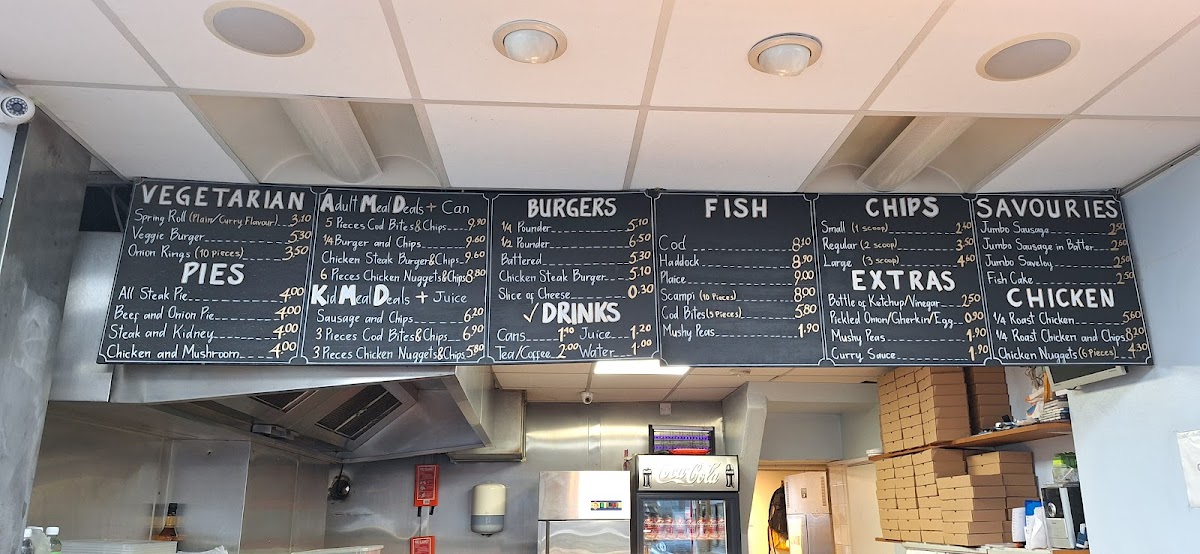 VEGETARIAN
Spring Roll (Plain/Curry Flavour) 3.10
Veggie Burger 5.30
Onion Rings (10 pieces) 3.50
PIES
All Steak Pie 4.00
Beef and Onion Pie 4.00
Steak and Kidney 4.00
Chicken and Mushroom 4.00
Adult Meal Deals + Can
5 Pieces Cod Bites & Chips 9.90
1/4 Burger and Chips 9.60
Chicken Steak Burger & Chips 9.60
6 Pieces Chicken Nuggets & Chips 8.80
Kid Meal Deals + Juice
Sausage and Chips 6.20
3 Pieces Cod Bites & Chips 6.90
3 Pieces Chicken Nuggets & Chips 5.80
BURGERS
1/4 Pounder 5.10
1/2 Pounder 6.50
Battered 5.30
Chicken Steak Burger 5.10
Slice of Cheese 0.30
DRINKS
Cans 1.40 Juice 1.20
Tea/Coffee 2.00 Water 1.00
FISH
Cod 8.10
Haddock 8.90
Plaice 9.00
Scampi (10 Pieces) 8.00
Cod Bites (5 Pieces) 5.80
Mushy Peas 1.90
CHIPS
Small (1 scoop) 2.40
Regular (2 scoop) 3.50
Large (3 scoop) 4.60
EXTRAS
Bottle of Ketchup/Vinegar 2.50
Pickled Onion/Gherkin/Egg 0.90
Mushy Peas 1.90
Curry Sauce 1.90
SAVOURIES
Jumbo Sausage 2.50
Jumbo Sausage in Batter 2.60
Jumbo Saveloy 2.50
Fish Cake 2.50
CHICKEN
1/4 Roast Chicken 5.60
1/4 Roast Chicken and Chips 8.20
Chicken Nuggets (6 Pieces) 4.30
Coca-Cola